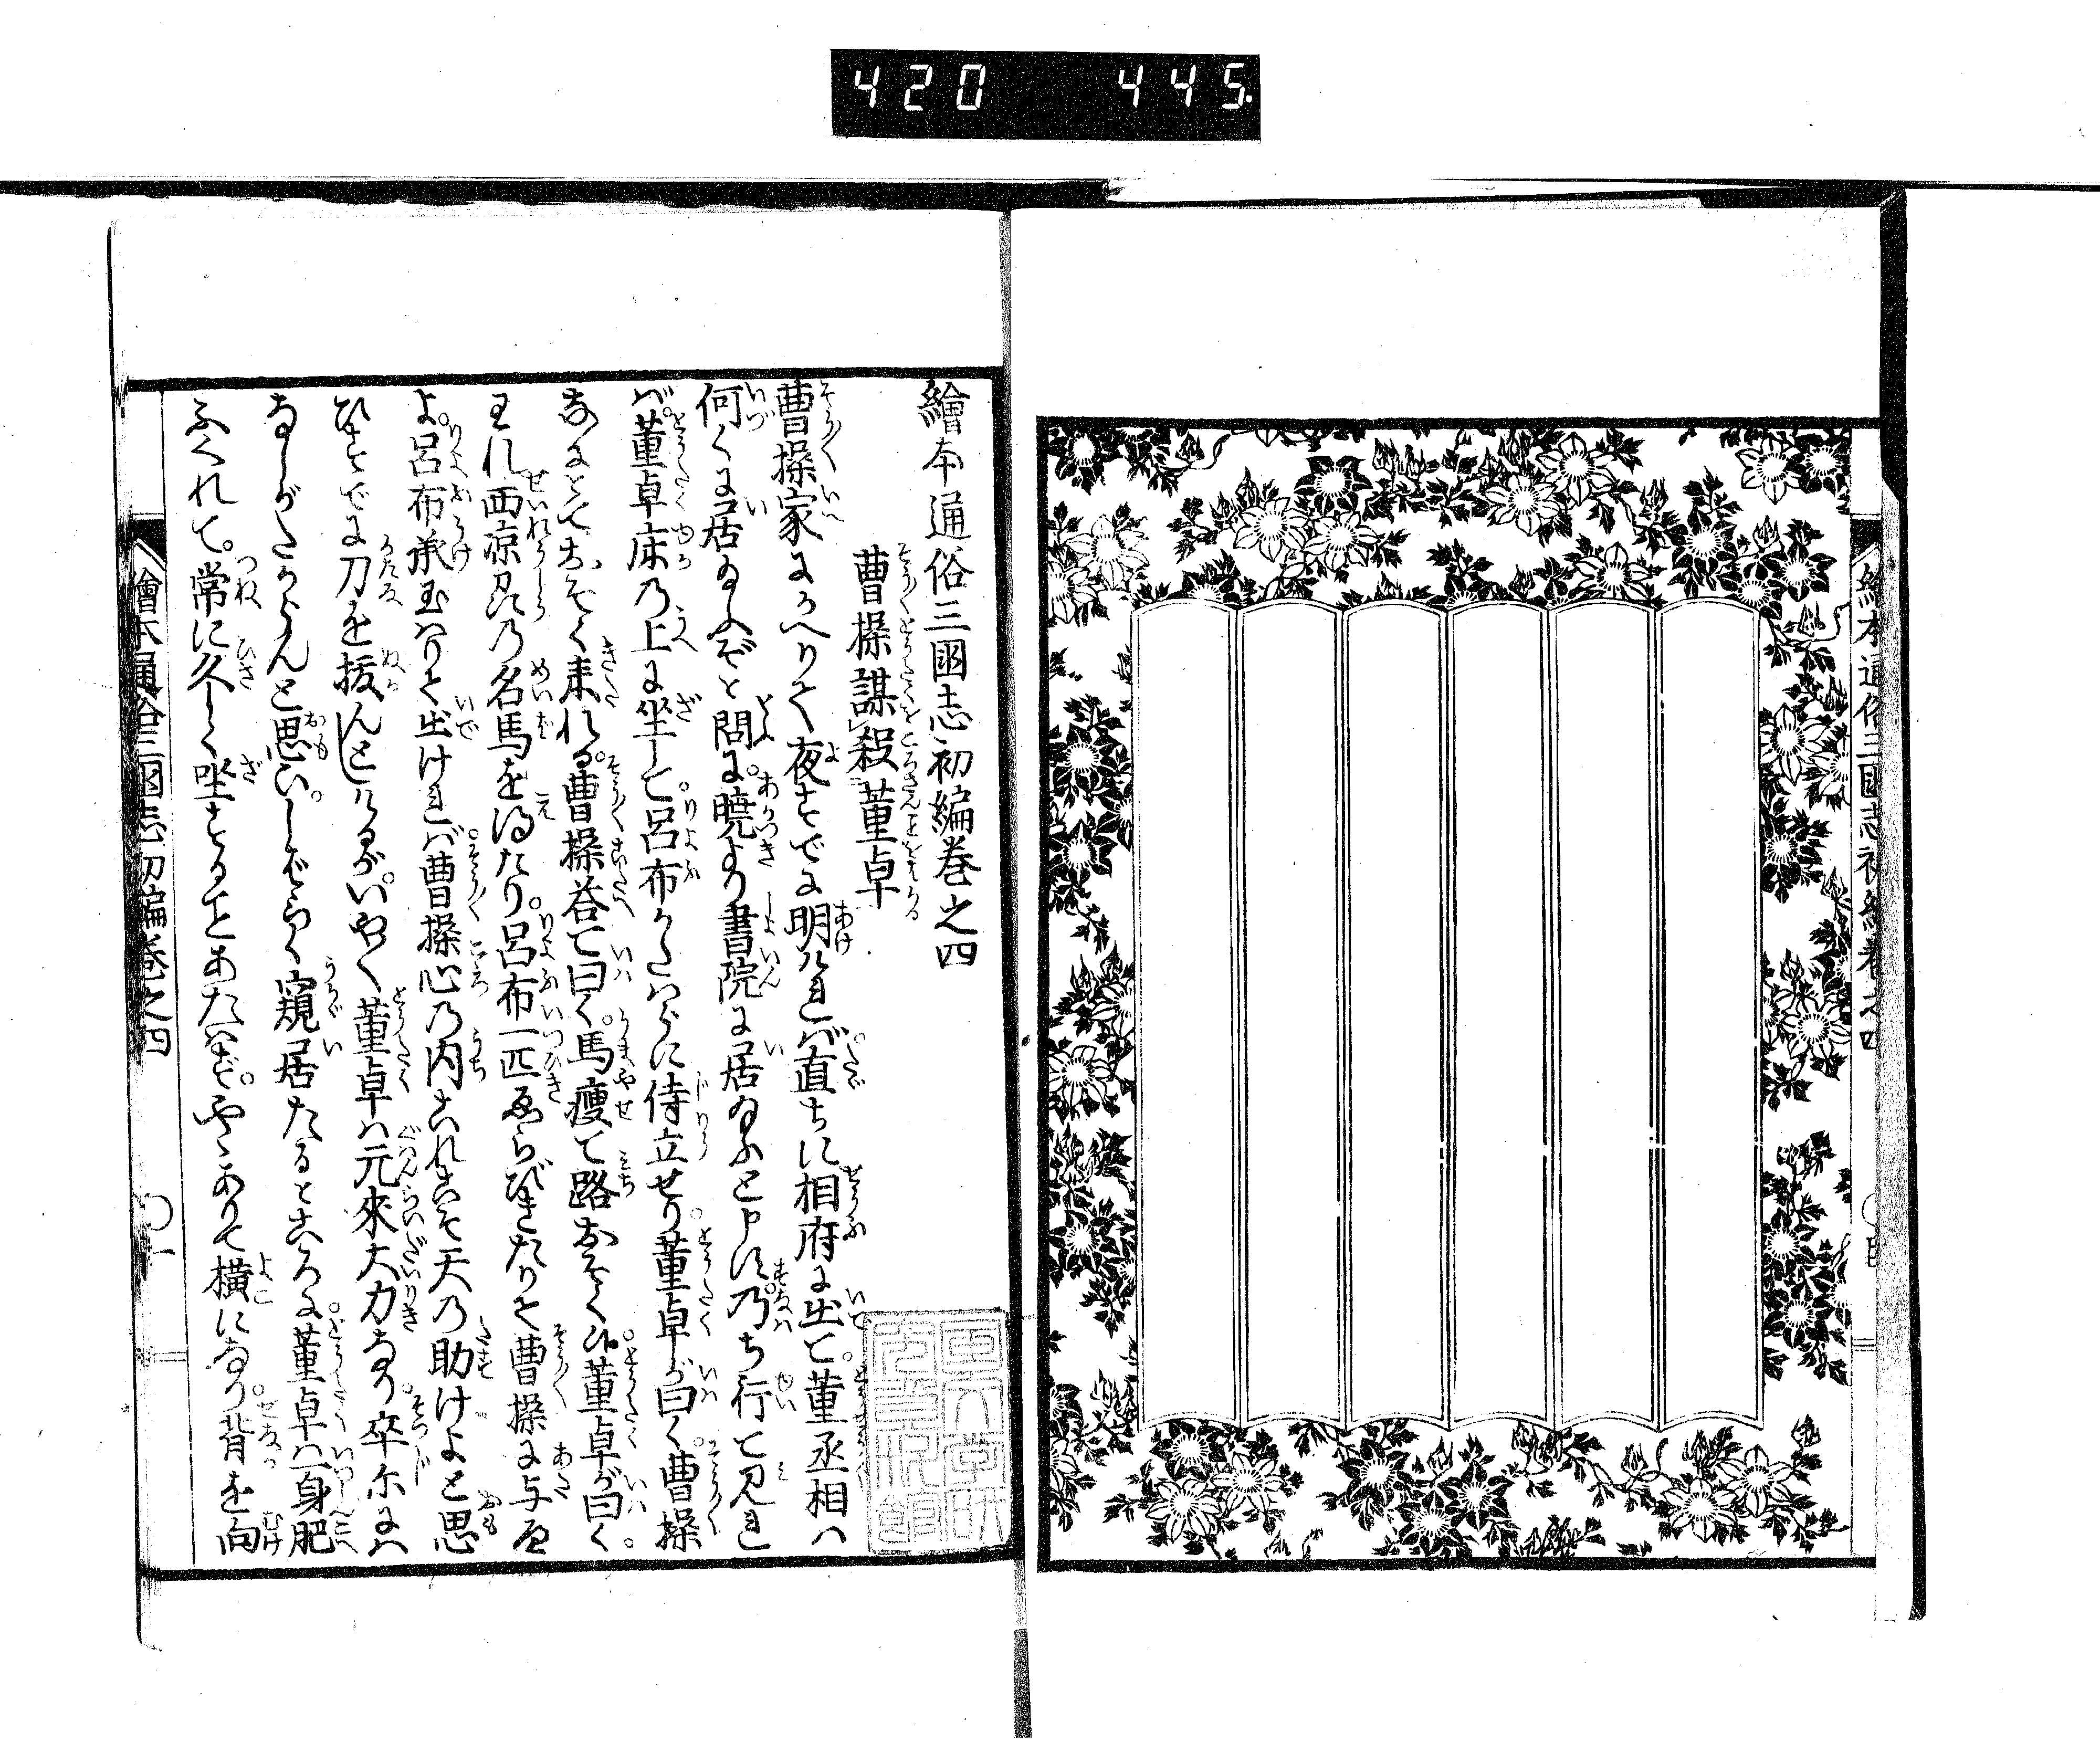 420 445.
繪本通俗三國志初編巻之四
繪本通俗三國志初編巻之四
曹操謀殺董卓
曹操家にかへりて夜すでに明ければ直ちに相府に出て董丞相ハ
何くに居給ふぞと問に。暁より書院に居給ふと申す。乃ち行て見れ
ば。董卓床の上に坐して。呂布かたハらに侍立せり。董卓が曰く。曹操
なにとておそく来れる。曹操答て曰く。馬痩て路おそく候。董卓が曰く。
われ西凉の名馬を得たり。呂布一匹ゑらびきたりて曹操に与へ
よ。呂布承玉ハりて出ければ。曹操心の内これこそ天の助けよと思
ひすでに刀を抜んとしけるが。いやいや董卓ハ元來大力なり。卒尓にハ
なしがたからんと思ひ。しばらく窺居たるところに。董卓ハ一身肥
ふくれて。常に久しく坐することあたハず。やゝありて横になり。背を向
繪本通俗三國志初編巻之四
〇一